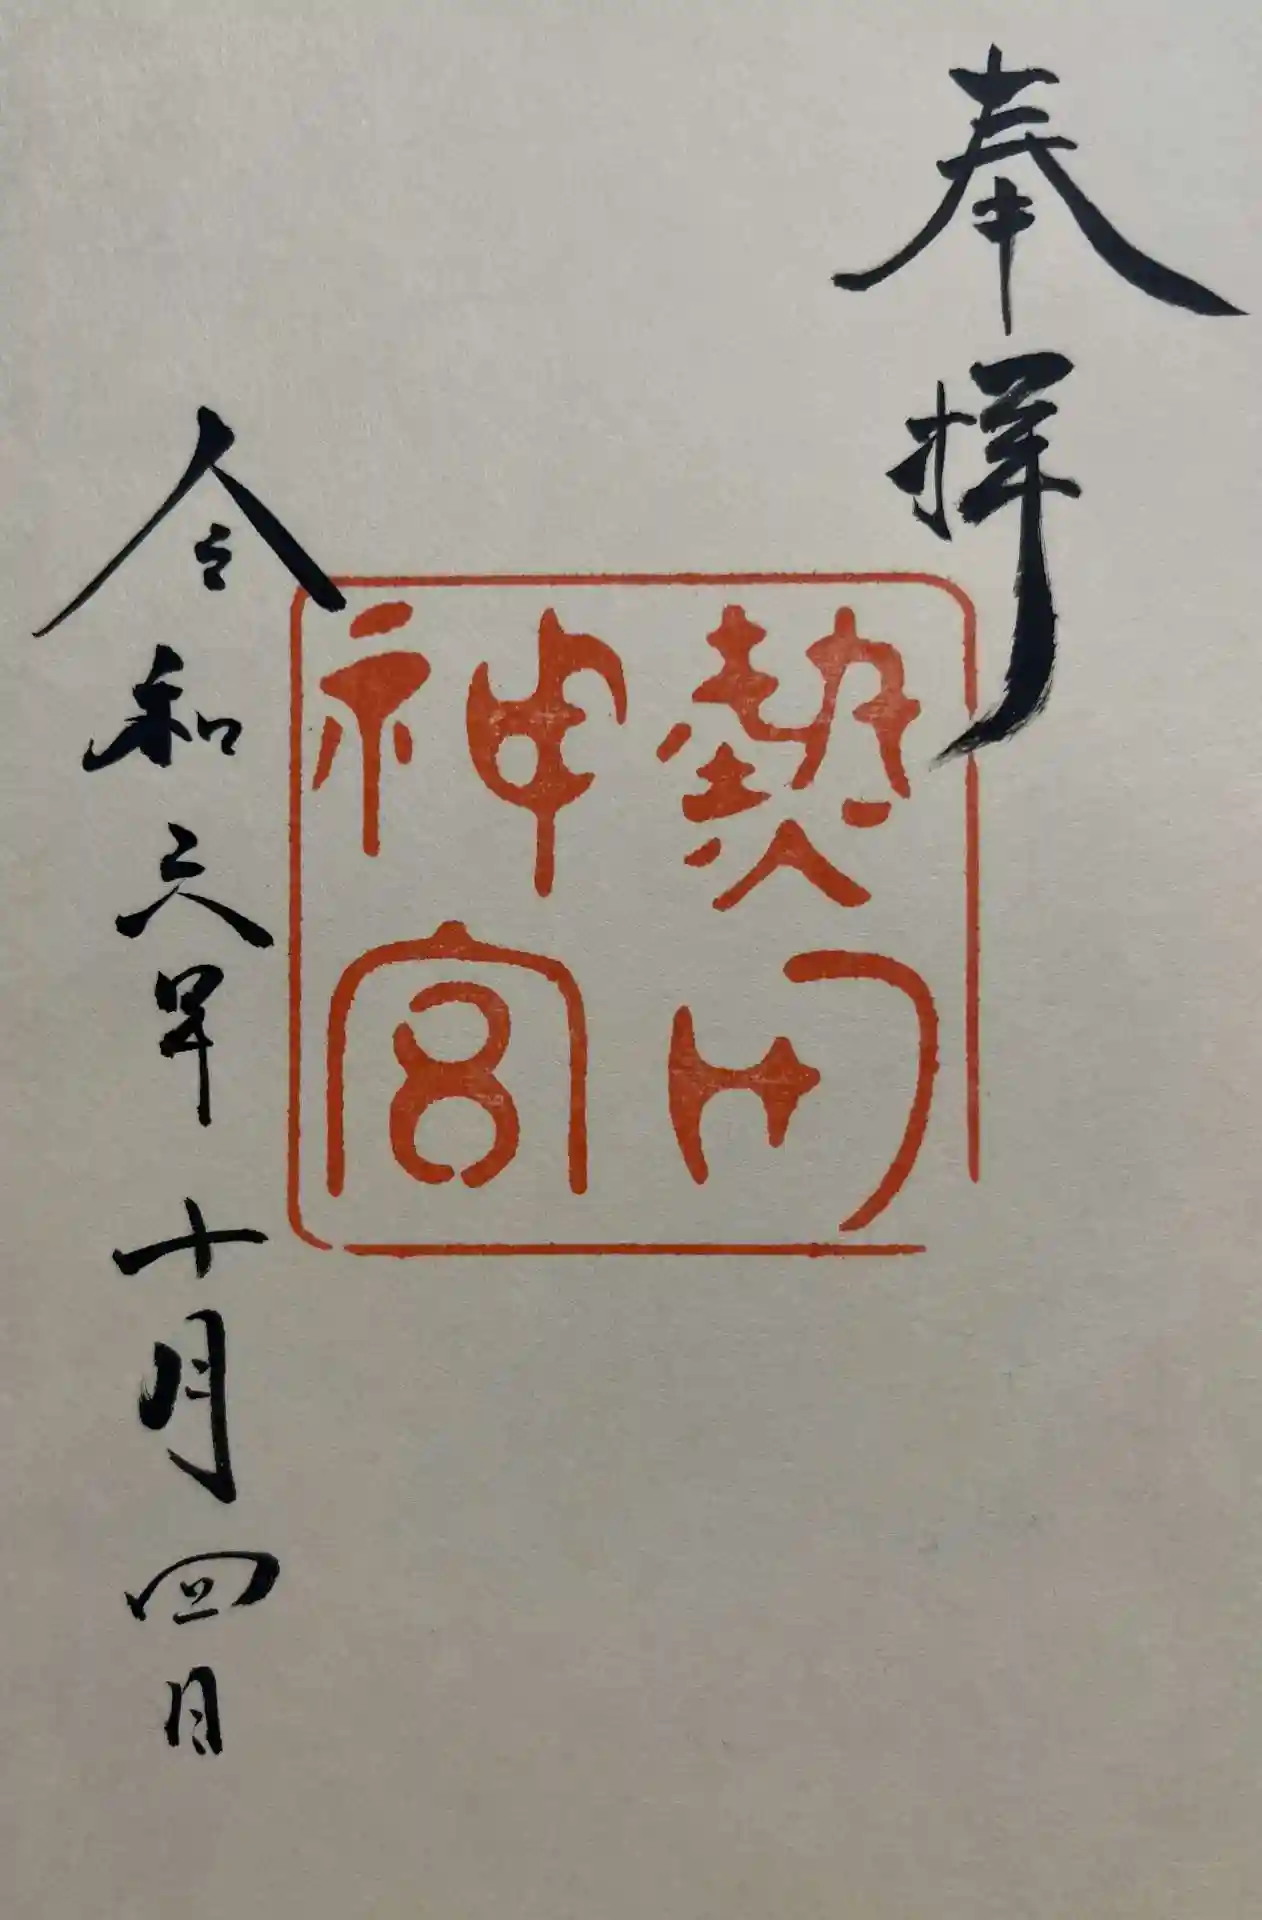 奉拝
熱田
神宮
令和六年十月四日